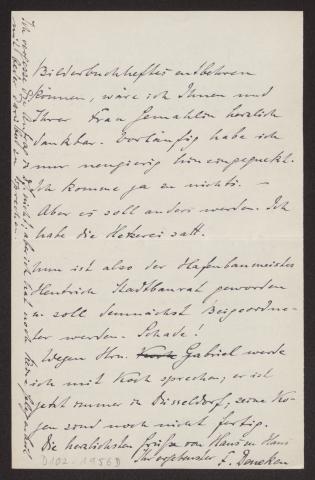 Bilderbuchheftes entbehren
können, wäre ich Ihnen und
Ihrer Frau Gemahlin herzlich
dankbar. Vorläufig habe ich
nur neugierig hineingeguckt.
Ich komme ja zu nichts. —
Aber es soll anders werden. Ich
habe die Hetzerei satt.
Nun ist also der Hafenbaumeister
Hentrich Stadtbaurat geworden
u. soll demnächst Beigeordne-
ter werden. Schade!
Wegen Hrn. Koch Gabriel werde
ich mit Koch sprechen; er ist
jetzt immer in Düsseldorf; seine
sind noch nicht fertig.
Die herzlichsten Grüße von Haus zu Haus
Ihr ergebenster F. Deneken
Ich vergesse die
mit
D102-1956D